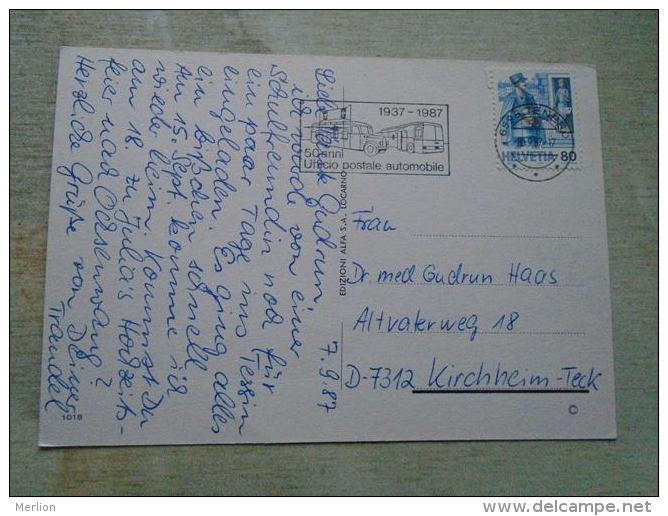 7.9.87
Liebe Gudrun
ich wurde von einer
Schulfreundin noch für
ein paar Tage ins Tessin
eingeladen. Es ging alles
ein bißchen schnell
Am 15. Sept. komme ich
wieder heim. Kommst Du
am 18 zu Julia's Hochzeits-
feier nach Ochsenwang?
Herzliche Grüße von Deiner
Traudel
1018
EDIZIONI ALFA S.A. LOCARNO
1937-1987
50 anni
Ufficio postale automobile
HELVETIA 80
Frau
Dr. med Gudrun Haas
Altvaterweg 18
D-7312 Kirchheim-Teck
©
Merlion
www.delcampe.net